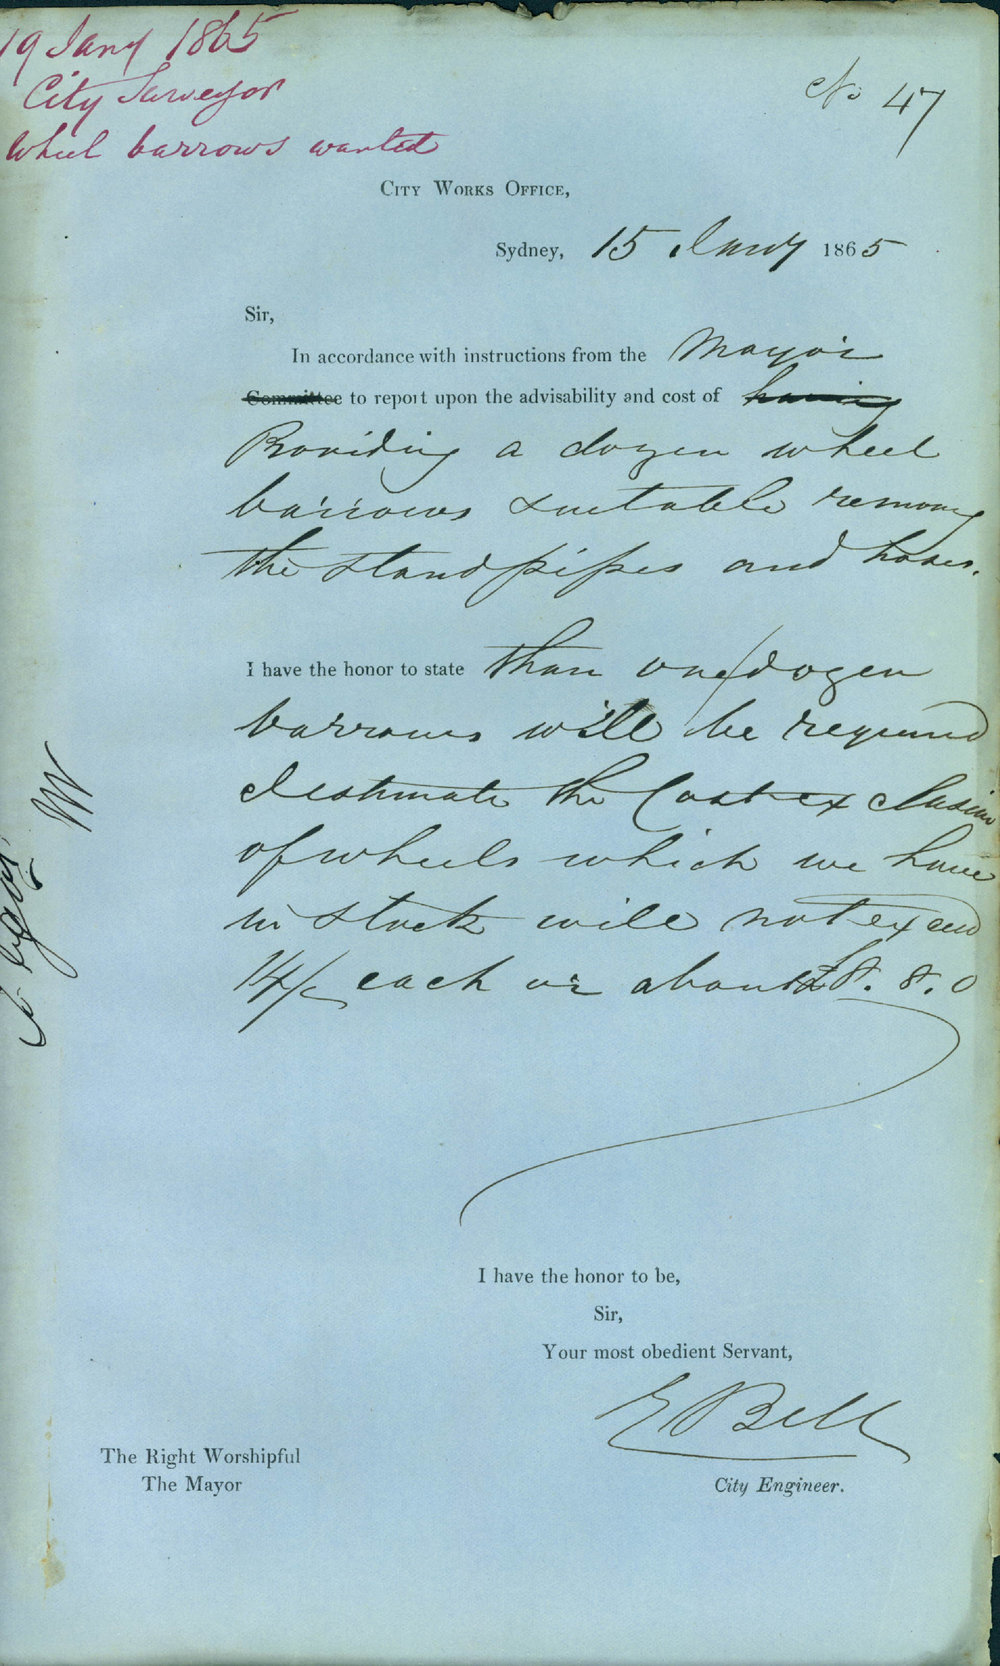 19 Jany 1865
City Surveyor
Wheel barrows wanted
No 47
City Works Office,
Sydney, 15 Jany 1865
Sir,
In accordance with instructions from the Mayor
Committee to report upon the advisability and cost of having
Providing a dozen wheel
barrows suitable removing
the standpipes and hoses.
I have the honor to state than one/dozen
barrows will be required
I estimate the Cost exclusive
of wheels which we have
in stock will not exceed
14/- each or about £8. 8. 0
I have the honor to be,
Sir,
Your most obedient Servant,
E Bell
The Right Worshipful
The Mayor
City Engineer.